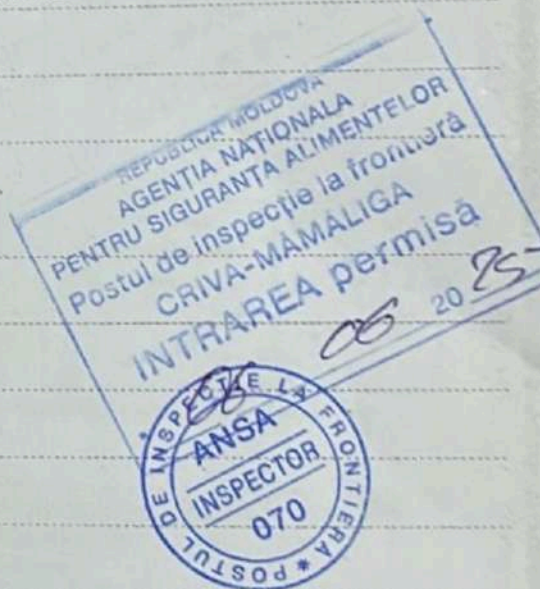 REPUBLICA MOLDOVA
AGENTIA NATIONALA
PENTRU SIGURANTA ALIMENTELOR
Postul de inspecție la frontieră
CRIVA-MAMALIGA
INTRAREA permisă
06 2025
POSTUL DE INSPECTIE LA FRONTIERA *
ANSA
INSPECTOR
070